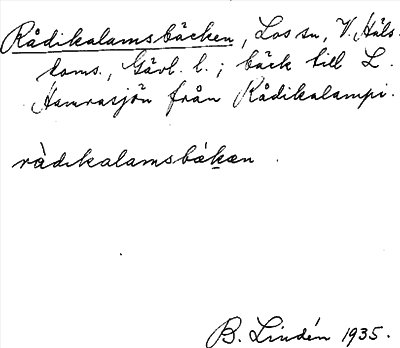 Rådikalamsbäcken, Los sn, V. Häls.
doms., Gävl. l.; bäck till L.
Hamrasjön från Rådikalampi.
ràdıkalamsbákæn.
B. Lindén 1935.